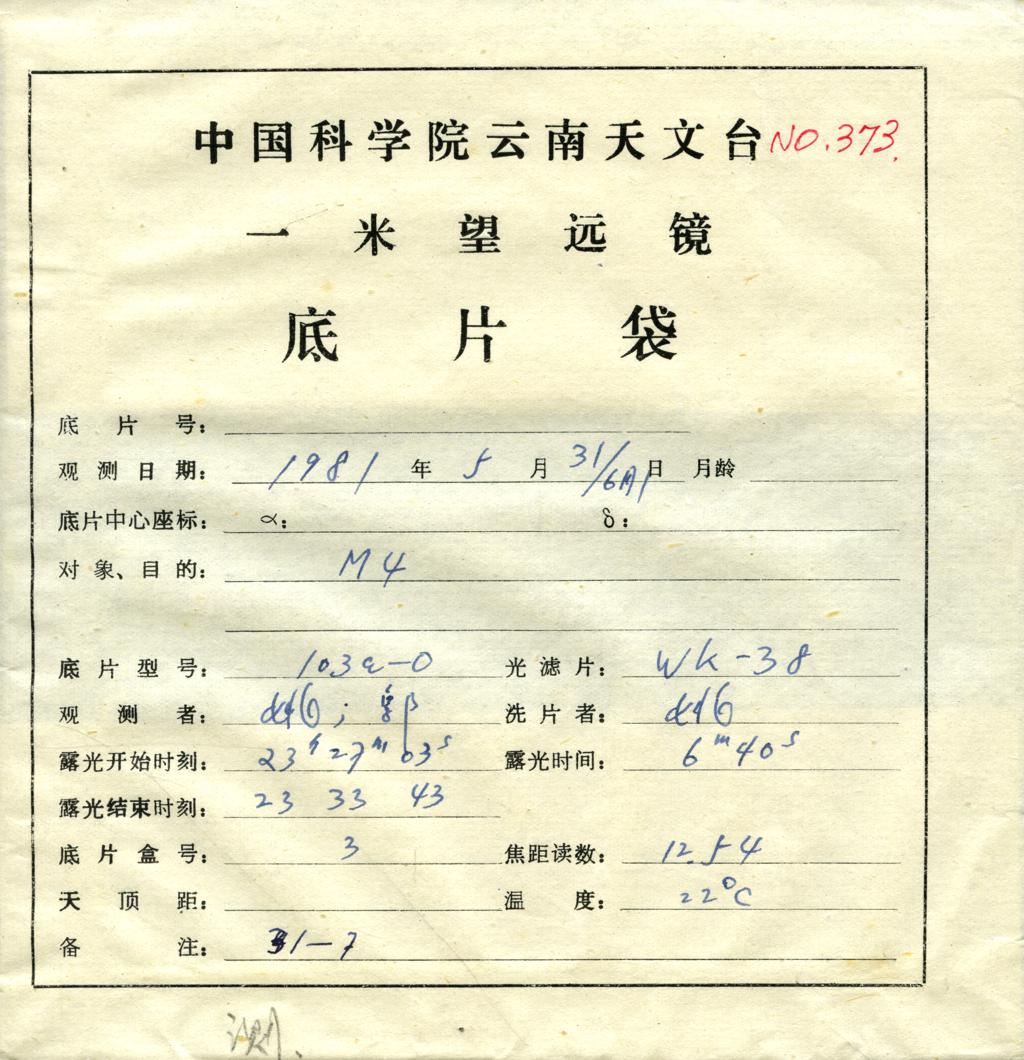 中国科学院云南天文台 NO.373.
一米望远镜
底片袋
底片号：
观测日期： 1981 年 5 月 31/6月1 日 月龄
底片中心座标： α： δ：
对象、目的： M4
底片型号： 103a-O 光滤片： WK-38
观测者： ； 郭 洗片者：
露光开始时刻： 23h 27m 03s 露光时间： 6m 40s
露光结束时刻： 23 33 43
底片盒号： 3 焦距读数： 12.54
天顶距： 温度： 22°C
备注： 31-7
测.